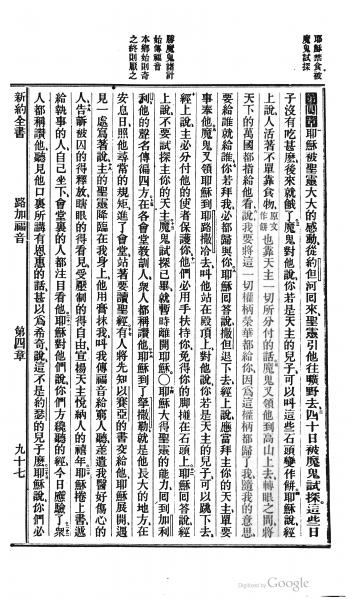 耶穌禁食被
魔鬼試探
勝魔鬼諸計
始傳福音
本鄉始則奇
之終則厭之
第四章 耶穌被聖靈大大的感動從約但河回來聖靈引他往曠野去四十日被魔鬼試探這些日
子沒有吃甚麽後來就餓了魔鬼對他說你若是天主的兒子可以叫這些石頭變作餅耶穌說經
上說人活著不單靠食物原文作餅也靠天主一切所分付的話魔鬼又領他到高山上去轉眼之間將
天下的萬國都指給他看說我要將這一切權柄榮華都給你因為這權柄都歸了我隨我的意思
要給誰就給誰你若拜我必都歸與你耶穌回答說撒但退下去經上說應當拜主你的天主單要
事奉他魔鬼又領耶穌到耶路撒冷去叫他站在殿頂上對他說你若是天主的兒子可以跳下去
經上說主必分付他的使者保護你他們必用手扶持你免得你的脚碰在石頭上耶穌回答說經
上說不要試探主你的天主魔鬼試探已畢就暫時離開耶穌〇耶穌大得聖靈的能力回到加利
利他的聲名傳徧四方在各會堂教訓人衆人都稱讚他耶穌到了拿撒勒就是他長大的地方在
安息日照他尋常的規矩進了會堂站著要讀聖經有人將先知以賽亞的書交給他耶穌展開遇
見一處寫著說主的聖靈降臨在我身上他用膏抹我叫我傳福音給窮人聽差遣我醫好傷心的
人告訴被囚的得釋放瞎眼的得看見受壓制的得自由宣揚天主悅納人的禧年耶穌捲上書遞
給執事的人自己坐下會堂裏的人都注目看他耶穌對他們說你們方纔聽的經今日應驗了衆
人都稱讚他聽見他口裏所講有恩惠的話甚以為希奇說這不是約瑟的兒子麽耶穌說你們必
新約全書 路加福音 第四章 九十七
Digitized by Google